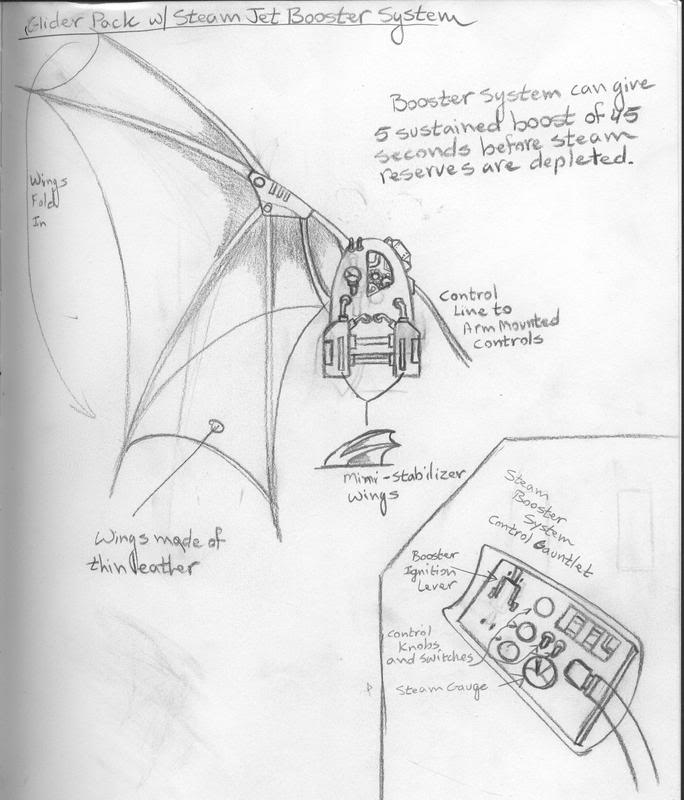 Glider Pack w/ Steam Jet Booster System
Booster System can give
5 sustained boost of 45
seconds before steam
reserves are depleted.
Wings
Fold
In
Control
Line to
Arm Mounted
Controls
Mimi-stabilizer
wings
Wings made of
thin leather
Steam
Booster
System
Control Gauntlet
Booster
Ignition
Lever
Control
Knobs,
and switches
Steam Gauge